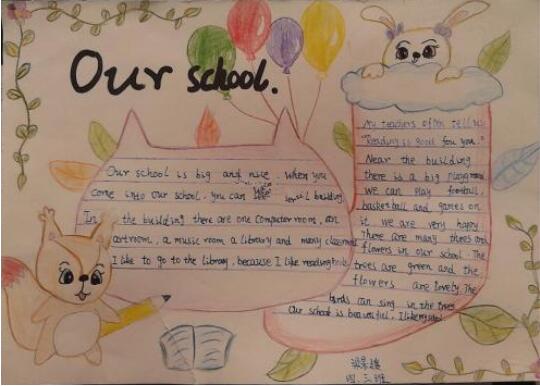 Our school.
Our school is big and nice. When you
come into our school, you can see building
In the building there are one computer room, an
artroom, a music room a library and many classroom
I like to go to the library, because I like reading books.
My teachers often tell us
"Reading is good for you."
Near the building
there is a big playground
we can play football,
basketball and games on
it we are very happy.
There are many trees and
flowers in our school. The
trees are green and the
flowers are lovely. The
birds can sing in the trees
Our school is beautiful, I like my school.
四.三班